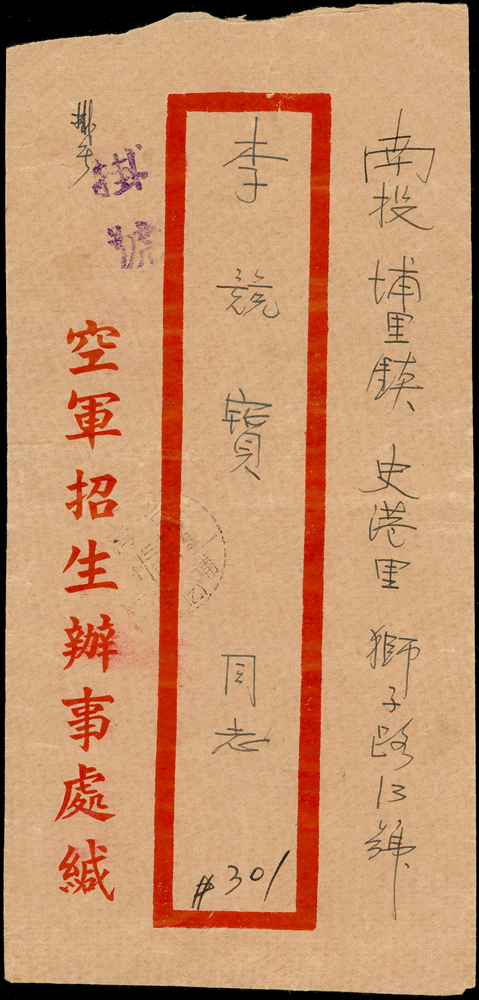 南投 埔里鎮 史港里 獅子路13號
李競寶 同志
#301
掛號
空軍招生辦事處緘